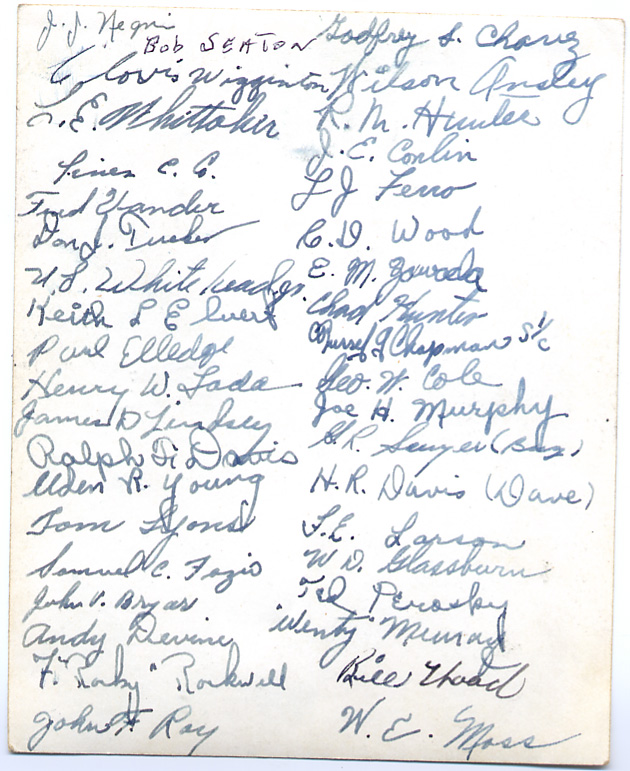 J. J. Negri
Bob SEATON
Clovis Wigginton
L. E. Whittaker
Pines C. C.
Fred Yander
Don J. Tucker
U. S. Whitehead Jr.
Keith L Elvert
Paul Elledge
Henry W. Lada
James D Lindsey
Ralph F. Davis
Alden R. Young
Tom Lyons
Samuel C. Fazio
John P. Bryar
Andy Devine
F. "Rocky" Rockwell
John F. Ray
Godfrey S. Chavez
Wilson Ansley
R. M. Hunter
J. E. Conlin
L J Ferro
C. D. Wood
E. M. Zawada
Chad Hunter
Russel J Chapman S 1/c
Geo. W. Cole
Joe H. Murphy
G. R. Sawyer (Buz)
H. R. Davis (Dave)
F. E. Larson
W D. Glassburn
Ted Perosky
"Wenty" Murray
Bill
W. E. Moss